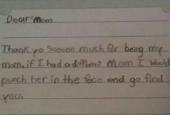 Dear Mom
Thank yo Sooooo much for being my
mom. if I had a different mom I would
punch her in the face and go find
you.